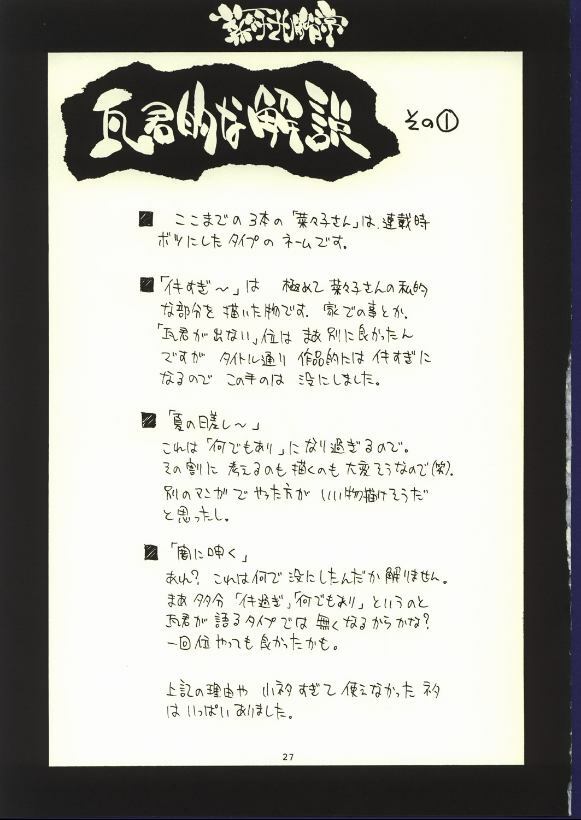 瓦君的な解説 その①
■ ここまでの3本の「菜々子さん」は、連載時
ボツにしたタイプのネームです。
■「イキすぎ〜」は 極めて菜々子さんの私的
な部分を描いた物です。家での事とか。
「瓦君が出ない」位は まあ別に良かったん
ですが タイトル通り 作品的にはイキすぎに
なるので この手のは 没にしました。
■「夏の日差し〜」
これは「何でもあり」になり過ぎるので。
その割に 考えるのも描くのも大変そうなので(笑)。
別のマンガで やった方が いい物描けそうだ
と思ったし。
■「闇に呻く」
あれ? これは何で没にしたんだか解りません。
まあ多分「イキ過ぎ」「何でもあり」というのと
瓦君が語るタイプでは無くなるからかな?
一回位やっても良かったかも。
上記の理由や 小ネタすぎて使えなかったネタ
はいっぱいありました。
27